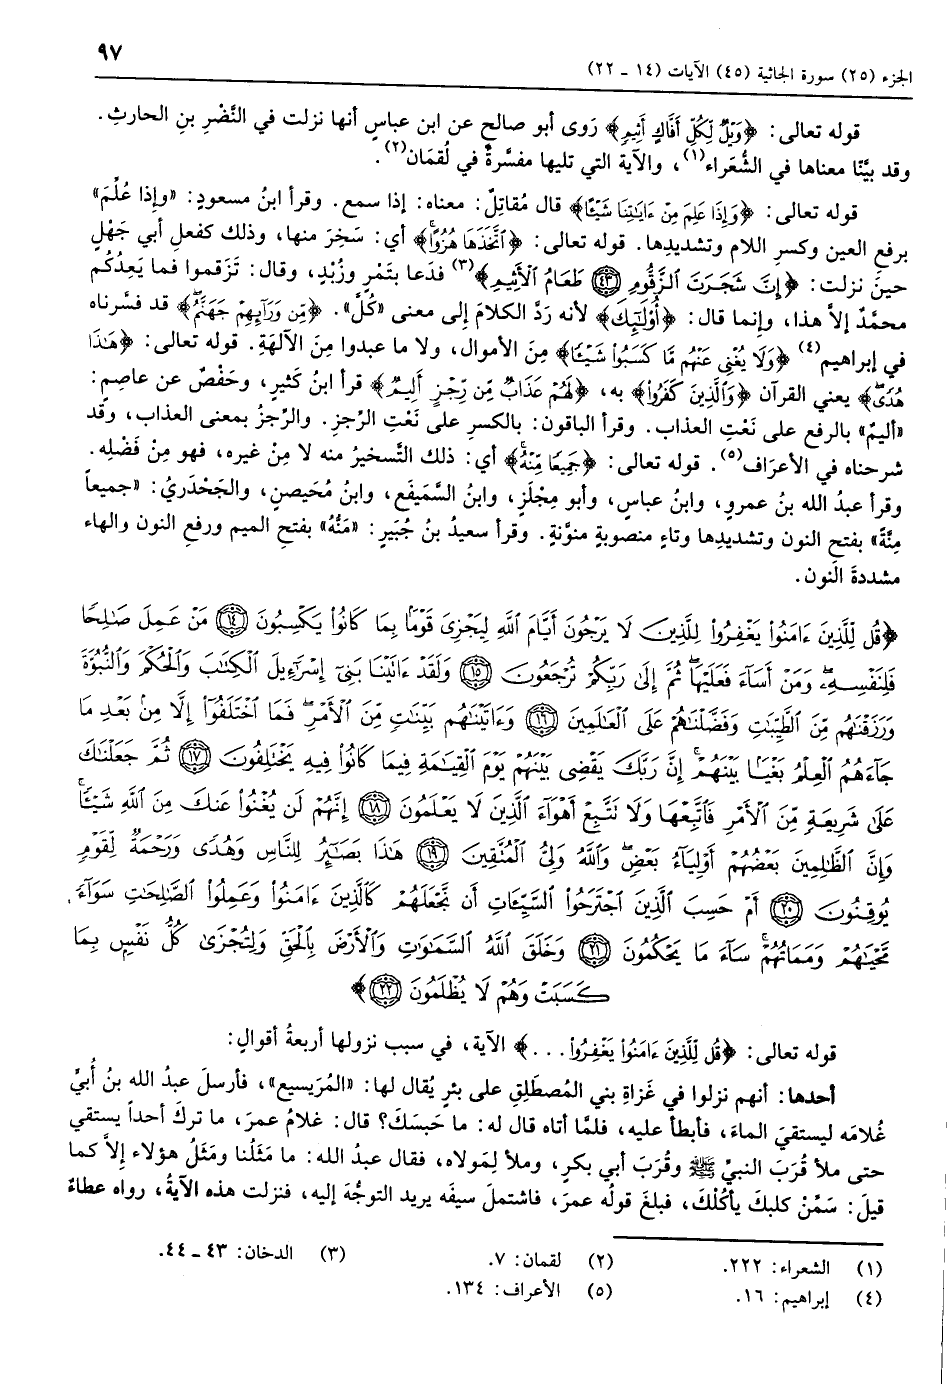 ٩٧
الجزء (٢٥) سورة الجاثية (٤٥) الآيات (١٤ ـ ٢٢)
قوله تعالى: ﴿وَيْلٌ لِّكُلِّ أَفَّاكٍ أَثِيمٍ﴾ رَوى أبو صالحٍ عن ابن عباسٍ أنها نزلت في النَّضْرِ بنِ الحارثِ.
وقد بيَّنّا معناها في الشُّعَراء(١)، والآية التي تليها مفسَّرةٌ في لُقمَان(٢).
قوله تعالى: ﴿وَإِذَا عَلِمَ مِنْ ءَايَٰتِنَا شَيْئًا﴾ قال مُقاتلٌ: معناه: إذا سمع. وقرأ ابنُ مسعودٍ: «وإذا عُلِّمَ»
برفع العين وكسرِ اللام وتشديدِها. قوله تعالى: ﴿ٱتَّخَذَهَا هُزُوًا﴾ أي: سَخِرَ منها، وذلك كفعلِ أبي جَهْلٍ
حينَ نزلت: ﴿إِنَّ شَجَرَتَ ٱلزَّقُّومِ ٤٣ طَعَامُ ٱلْأَثِيمِ﴾(٣) فدَعا بتَمْرٍ وزُبْدٍ، وقال: تَزَقموا فما يَعِدُكُم
محمَّدٌ إلاَّ هذا، وإنما قال: ﴿أُوْلَٰٓئِكَ﴾ لأنه ردَّ الكلامَ إلى معنى «كُلَّ». ﴿مِّن وَرَآئِهِمْ جَهَنَّمُ﴾ قد فسَّرناه
في إبراهيم(٤) ﴿وَلَا يُغْنِي عَنْهُم مَّا كَسَبُواْ شَيْئًا﴾ مِنَ الأموال، ولا ما عبدوا مِنَ الآلهةِ. قوله تعالى: ﴿هَٰذَا
هُدًى﴾ يعني القرآن ﴿وَٱلَّذِينَ كَفَرُواْ﴾ به، ﴿لَهُمْ عَذَابٌ مِّن رِّجْزٍ أَلِيمٌ﴾ قرأ ابنُ كثيرٍ، وحَفْصٌ عن عاصمٍ:
«أليمٌ» بالرفع على نَعْتِ العذاب. وقرأ الباقون: بالكسر على نَعْتِ الرجزِ. والرِّجزُ بمعنى العذاب، وقد
شرحناه في الأعرَاف(٥). قوله تعالى: ﴿جَمِيعًا مِّنْهُ﴾ أي: ذلك التَّسخيرُ منه لا مِنْ غيره، فهو مِنْ فَضْلِه.
وقرأ عبدُ الله بنُ عمروٍ، وابنُ عباسٍ، وأبو مِجْلَزٍ، وابنُ السَّمَيفَع، وابنُ مُحَيصنٍ، والجَحْدَريُّ: «جميعاً
مِنَّةً» بفتح النون وتشديدِها وتاءٍ منصوبةٍ منوَّنةٍ. وقرأ سعيدُ بنُ جُبَيرٍ: «مَنُّهُ» بفتحِ الميم ورفعِ النون والهاء
مشددةَ النون.
﴿قُل لِّلَّذِينَ ءَامَنُواْ يَغْفِرُواْ لِلَّذِينَ لَا يَرْجُونَ أَيَّامَ ٱللَّهِ لِيَجْزِيَ قَوْمًا بِمَا كَانُواْ يَكْسِبُونَ ١٤ مَنْ عَمِلَ صَٰلِحًا
فَلِنَفْسِهِۦ وَمَنْ أَسَآءَ فَعَلَيْهَا ثُمَّ إِلَىٰ رَبِّكُمْ تُرْجَعُونَ ١٥ وَلَقَدْ ءَاتَيْنَا بَنِيٓ إِسْرَٰٓءِيلَ ٱلْكِتَٰبَ وَٱلْحُكْمَ وَٱلنُّبُوَّةَ
وَرَزَقْنَٰهُم مِّنَ ٱلطَّيِّبَٰتِ وَفَضَّلْنَٰهُمْ عَلَى ٱلْعَٰلَمِينَ ١٦ وَءَاتَيْنَٰهُم بَيِّنَٰتٍ مِّنَ ٱلْأَمْرِ فَمَا ٱخْتَلَفُوٓاْ إِلَّا مِنۢ بَعْدِ مَا
جَآءَهُمُ ٱلْعِلْمُ بَغْيًۢا بَيْنَهُمْ إِنَّ رَبَّكَ يَقْضِي بَيْنَهُمْ يَوْمَ ٱلْقِيَٰمَةِ فِيمَا كَانُواْ فِيهِ يَخْتَلِفُونَ ١٧ ثُمَّ جَعَلْنَٰكَ
عَلَىٰ شَرِيعَةٍ مِّنَ ٱلْأَمْرِ فَٱتَّبِعْهَا وَلَا تَتَّبِعْ أَهْوَآءَ ٱلَّذِينَ لَا يَعْلَمُونَ ١٨ إِنَّهُمْ لَن يُغْنُواْ عَنكَ مِنَ ٱللَّهِ شَيْئًا
وَإِنَّ ٱلظَّٰلِمِينَ بَعْضُهُمْ أَوْلِيَآءُ بَعْضٍ وَٱللَّهُ وَلِيُّ ٱلْمُتَّقِينَ ١٩ هَٰذَا بَصَٰٓئِرُ لِلنَّاسِ وَهُدًى وَرَحْمَةٌ لِّقَوْمٍ
يُوقِنُونَ ٢٠ أَمْ حَسِبَ ٱلَّذِينَ ٱجْتَرَحُواْ ٱلسَّيِّـَٔاتِ أَن نَّجْعَلَهُمْ كَٱلَّذِينَ ءَامَنُواْ وَعَمِلُواْ ٱلصَّٰلِحَٰتِ سَوَآءً
مَّحْيَاهُمْ وَمَمَاتُهُمْ سَآءَ مَا يَحْكُمُونَ ٢١ وَخَلَقَ ٱللَّهُ ٱلسَّمَٰوَٰتِ وَٱلْأَرْضَ بِٱلْحَقِّ وَلِتُجْزَىٰ كُلُّ نَفْسٍۭ بِمَا
كَسَبَتْ وَهُمْ لَا يُظْلَمُونَ ٢٢﴾
قوله تعالى: ﴿قُل لِّلَّذِينَ ءَامَنُواْ يَغْفِرُواْ...﴾ الآية، في سبب نزولها أربعةُ أقوالٍ:
أحدها: أنهم نزلوا في غَزاةِ بني المُصطَلِقِ على بئرٍ يُقال لها: «المُرَيسيع»، فأرسلَ عبدُ الله بنُ أُبيٍّ
غُلامَه ليستقيَ الماءَ، فأبطأ عليه، فلمَّا أتاه قال له: ما حَبسَكَ؟ قال: غلامُ عمرَ، ما تركَ أحداً يستقي
حتى ملأ قُرَبَ النبيِّ ﷺ وقُرَبَ أبي بكرٍ، وملأ لِمَولاه، فقال عبدُ الله: ما مَثَلُنا ومَثَلُ هؤلاء إلاَّ كما
قيلَ: سَمِّنْ كلبكَ يأكُلْكَ، فبلغَ قولُه عمرَ، فاشتملَ سيفَه يريد التوجُّهَ إليه، فنزلت هذه الآيةُ، رواه عطاءٌ
(١) الشعراء: ٢٢٢. (٢) لقمان: ٧. (٣) الدخان: ٤٣ ـ ٤٤.
(٤) إبراهيم: ١٦. (٥) الأعراف: ١٣٤.